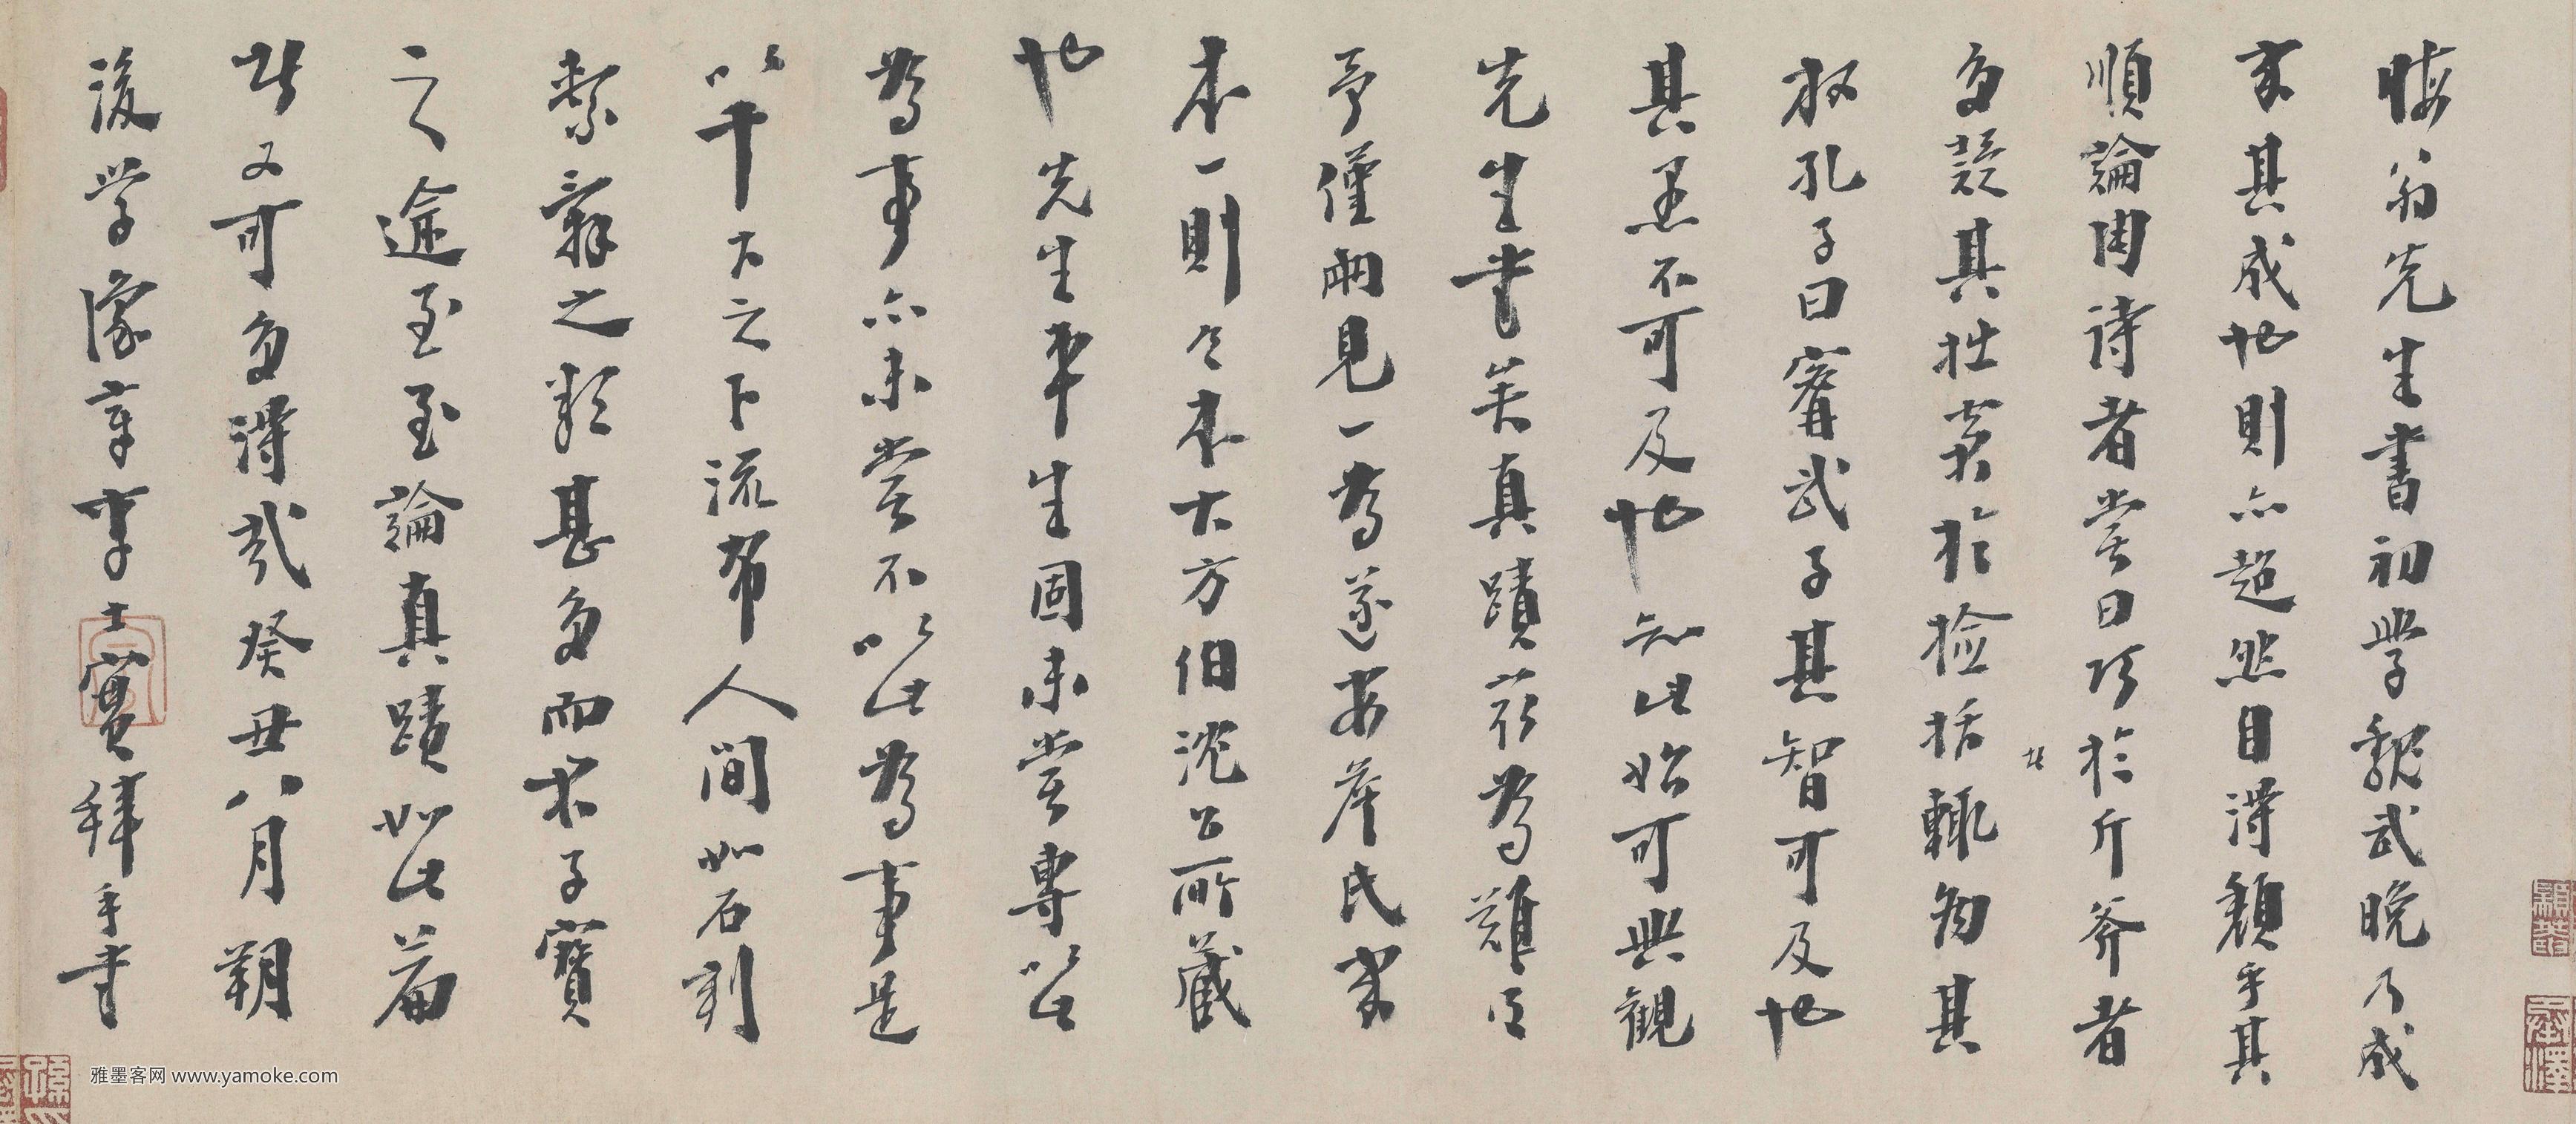 晦翁先生書初學魏武晚乃成
家其成也則亦超然自得顏乎其
順論陶詩者嘗曰巧於斤斧者
多疑其拙窘於撿括輒病其
放孔子曰甯武子其智可及也
其愚不可及也知此始可與觀
先生書矣真蹟於為難
予僅兩見一為遂安 氏家
本一則今本大方伯沈公所藏
也先生平生固未嘗專以
為事亦未嘗不以此為事是
以筆下之流布人間如石刻
繫辭之類甚多而求子寶
之迹至論真蹟如此篇
者又可多得哉癸丑八月朔
後學豫章李士實拜手書
雅墨客网 www.yamoke.com